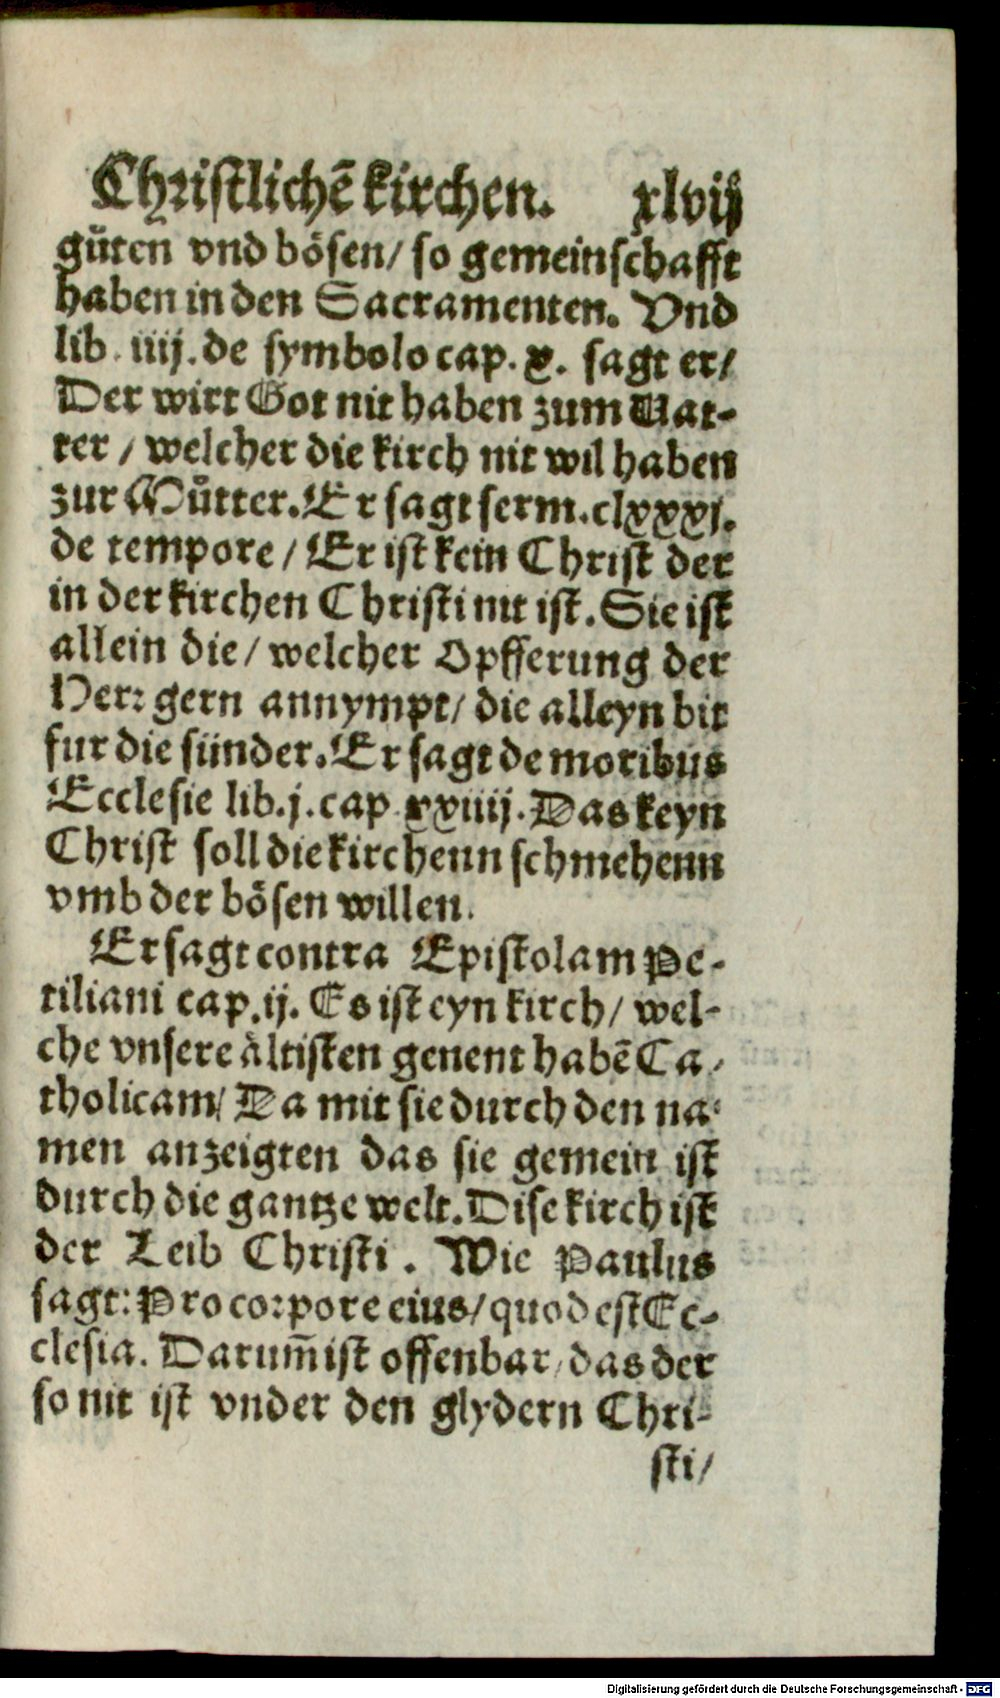 Christlichē kirchen. xlvij
gůten vnd bösen/ so gemeinschafft
haben in den Sacramenten. Vnd
lib. iiij. de symbolo cap. x. sagt er/
Der wirt Got nit haben zum Vat-
ter / welcher die kirch nit wil haben
zur Můtter. Er sagt serm. clxxxj.
de tempore / Er ist kein Christ der
in der kirchen Christi nit ist. Sie ist
allein die / welcher Opfferung der
Herr gern annympt/ die alleyn bit
fur die sünder. Er sagt de moribus
Ecclesie lib. j. cap xxiiij. Das keyn
Christ soll die kirchenn schmehenn
vmb der bösen willen.
Er sagt contra Epistolam Pe-
tiliani cap. ij. Es ist eyn kirch/ wel-
che vnsere ältisten genent habē Ca-
tholicam/ Da mit sie durch den na-
men anzeigten das sie gemein ist
durch die gantze welt. Dise kirch ist
der Leib Christi. Wie Paulus
sagt: Pro corpore eius/ quod est Ec-
clesia. Darum̄ ist offenbar/ das der
so nit ist vnder den glydern Chri-
sti/
Digitalisierung gefördert durch die Deutsche Forschungsgemeinschaft - DFG